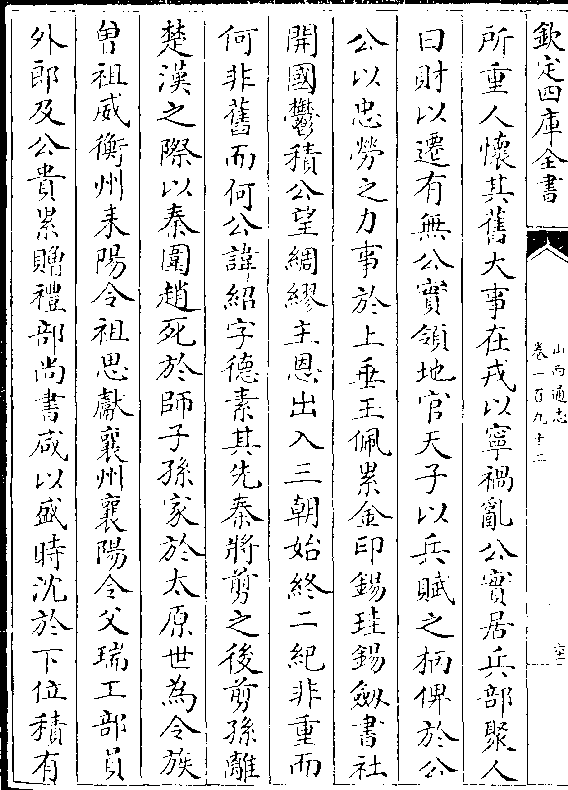 欽定四庫全書
山西通志
卷一百九十二
所重人懷其舊大事在戎以寧禍亂公實居兵部聚人
曰財以遷有無公實領地官天子以兵賦之柄俾於公
公以忠勞之力事於上垂玉佩累金印錫珪錫劔書社
開國鬱積公望綢繆主恩出入三朝始終二紀非重而
何非舊而何公諱紹字德素其先秦將剪之後剪孫離
楚漢之際以秦圍趙死於師子孫家於太原世為令族
曾祖威衡州耒陽令祖思獻襄州襄陽令父瑞工部員
外郎及公貴累贈禮部尚書咸以盛時沈於下位積有